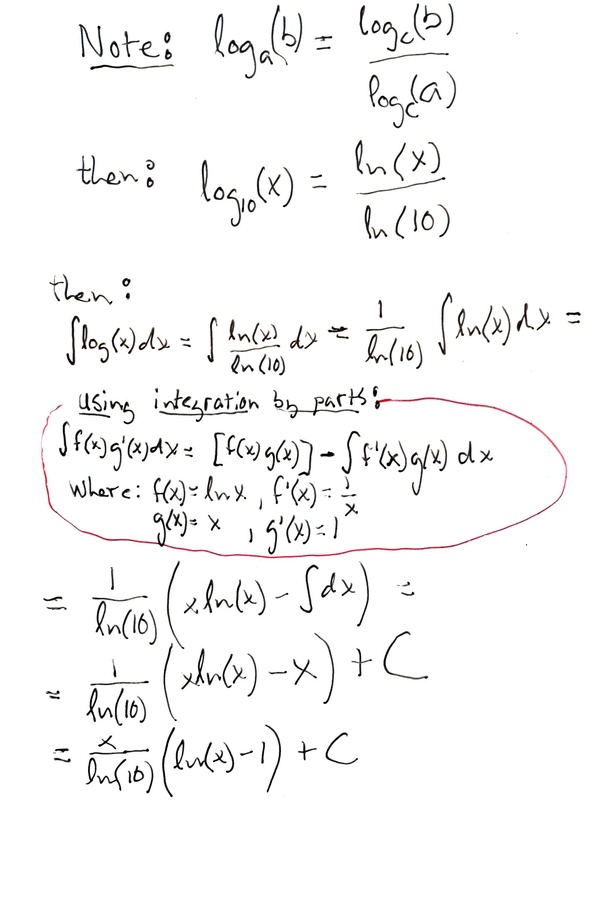 Note: logₐ(b) = log_c(b) / log_c(a)
then: log₁₀(x) = ln(x) / ln(10)
then:
∫log(x)dx = ∫ ln(x)/ln(10) dx = 1/ln(10) ∫ln(x)dx =
using integration by parts:
∫f(x)g'(x)dx = [f(x)g(x)] - ∫f'(x)g(x) dx
where: f(x)=lnx, f'(x)=1/x
g(x)=x, g'(x)=1
= 1/ln(10) (xln(x) - ∫dx) =
= 1/ln(10) (xln(x) - x) + C
= x/ln(10) (ln(x)-1) + C